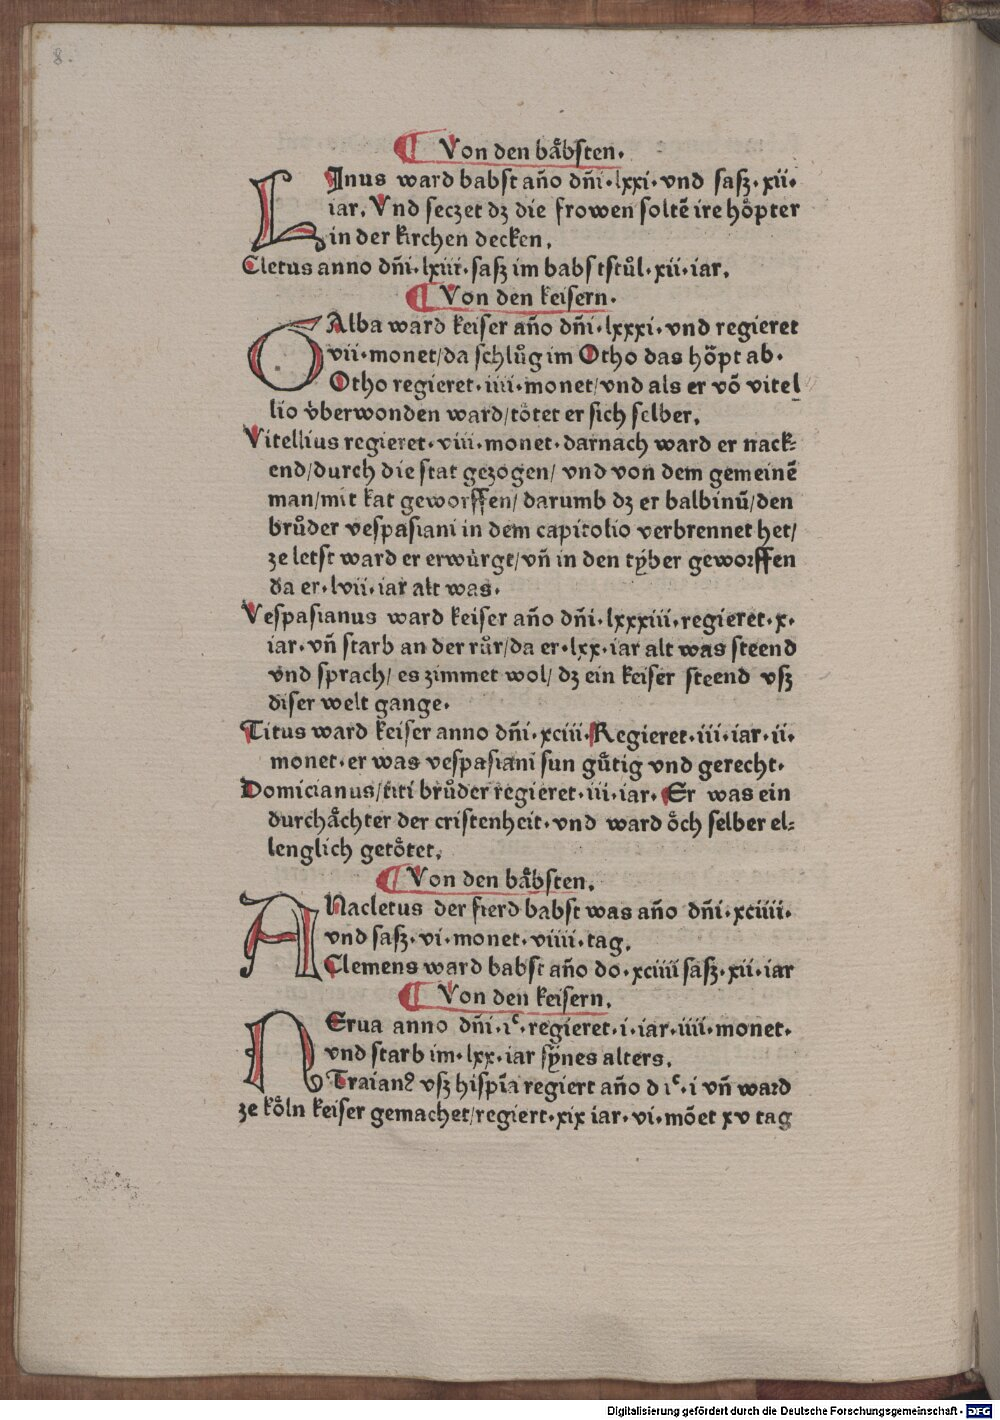 8
¶ Von den bäbsten.
LInus ward babst año dñi·lxxi·vnd sasz·xii·
iar. Vnd seczet dz die frowen soltẽ ire höpter
in der kirchen decken.
Cletus anno dñi·lxiii·sasz im babstſtůl·xii·iar.
¶ Von den keisern·
GAlba ward keiser año dñi·lxxxi·vnd regieret
vii·monet/da schlůg im Otho das höpt ab·
Otho regieret·iiii·monet/vnd als er võ vitel
lio v̈berwonden ward/tötet er sich selber.
Vitellius regieret·viii·monet·darnach ward er nack⸗
end/durch die stat gezogen/ vnd von dem gemeinẽ
man/mit kat geworffen/ darumb dz er balbinũ/den
brůder vespasiani in dem capitolio verbrennet het/
ze letst ward er erwürgt/vñ in den tyber geworffen
da er·lvii·iar alt was·
Vespasianus ward keiser año dñi·lxxxiii·regieret·x·
iar·vñ starb an der růr/da er·lxx·iar alt was steend
vnd sprach/ es zimmet wol/ dz ein keiser steend vsz
diser welt gange·
Titus ward keiser anno dñi·xciii·Regieret·iii·iar·ii·
monet·er was vespasiani sun gütig vnd gerecht·
Domicianus/titi brůder regieret·iii·iar· Er was ein
durchächter der cristenheit·vnd ward öch selber el⸗
lenglich getötet.
¶ Von den bäbsten.
ANacletus der fierd babst was año dñi·xciiii·
vnd sasz·vi·monet·viiii·tag.
Clemens ward babst año do·xciiii sasz·xii·iar
¶ Von den keisern.
NErua anno dñi·iᶜ·regieret·i·iar·iiii·monet·
vnd starb im·lxx·iar sÿnes alters.
Traianꝰ vsz hispĩa regiert año d iᶜ·i vñ ward
ze köln keiser gemachet/regiert·xix iar·vi·mõet xv tag
Digitalisierung gefördert durch die Deutsche Forschungsgemeinschaft - DFG